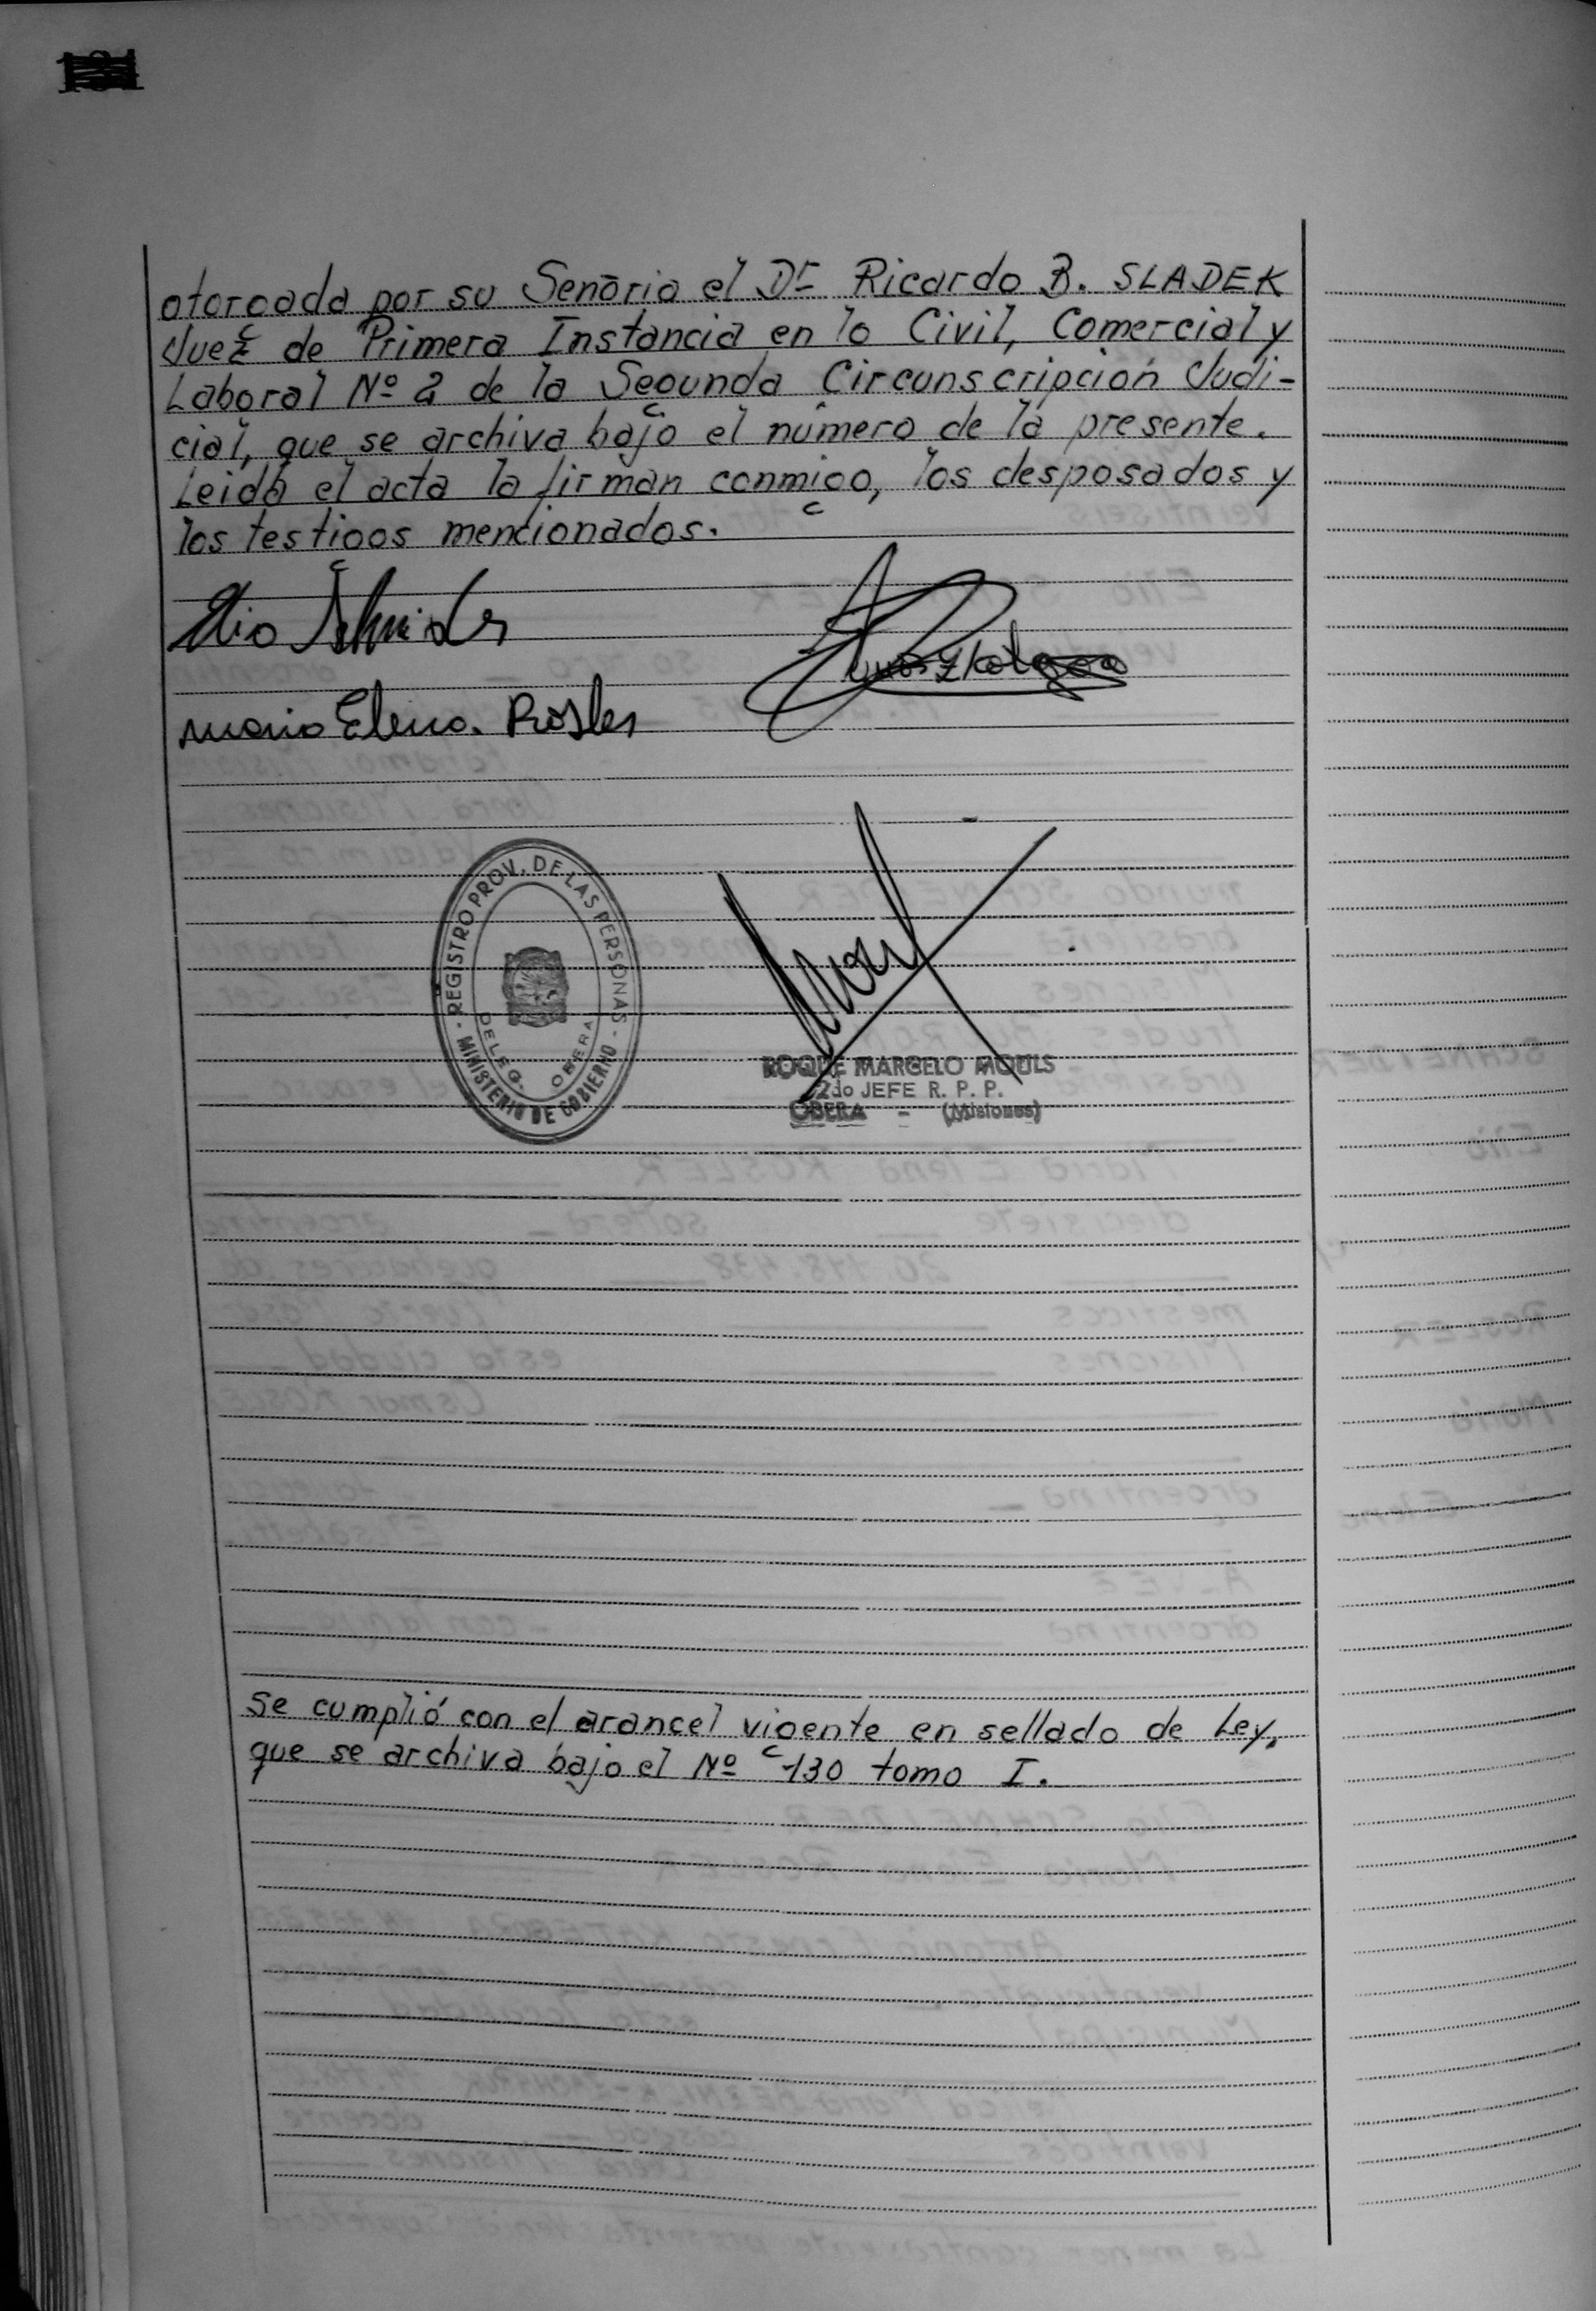 otorgada por su Senōria el Dr Ricardo B. SLADEK
Juez de Primera Instancia en lo Civil, Comercial y
Laboral Nº 2 de la Segunda Circunscripción Judi-
cial, que se archiva bajo el número de la presente.
Leida el acta la firman conmigo, los desposados y
los testigos mencionados.
Elio Schneider
Maria Elena. Rosler
REGISTRO PROV. DE LAS PERSONAS
DELEG. OBERA
MINISTERIO DE GOBIERNO
ROQUE MARCELO MOULS
2do JEFE R. P. P.
OBERA - (Misiones)
se cumplió con el arancel vigente en sellado de Ley,
que se archiva bajo el Nº 130 tomo I.